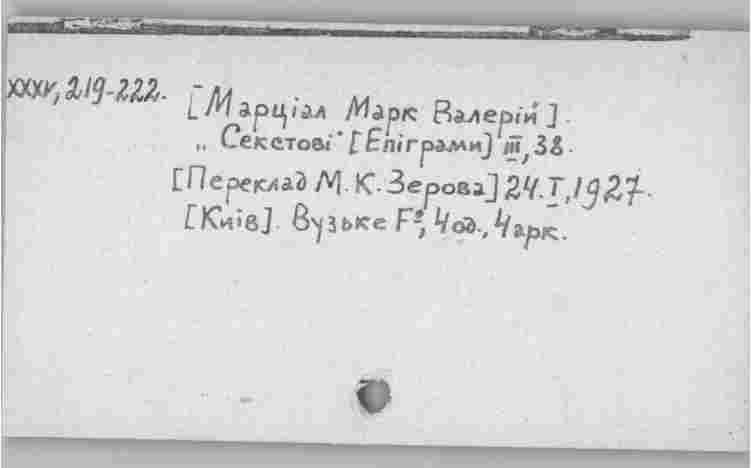 XXXV, 219-222.
[Марціал Марк Валерій].
„ Секстові" [Епіграми] III, 38.
[Переклад М. К. Зерова] 24.I, 1927.
[Київ]. Вузьке Fº, 4 од., 4 арк.